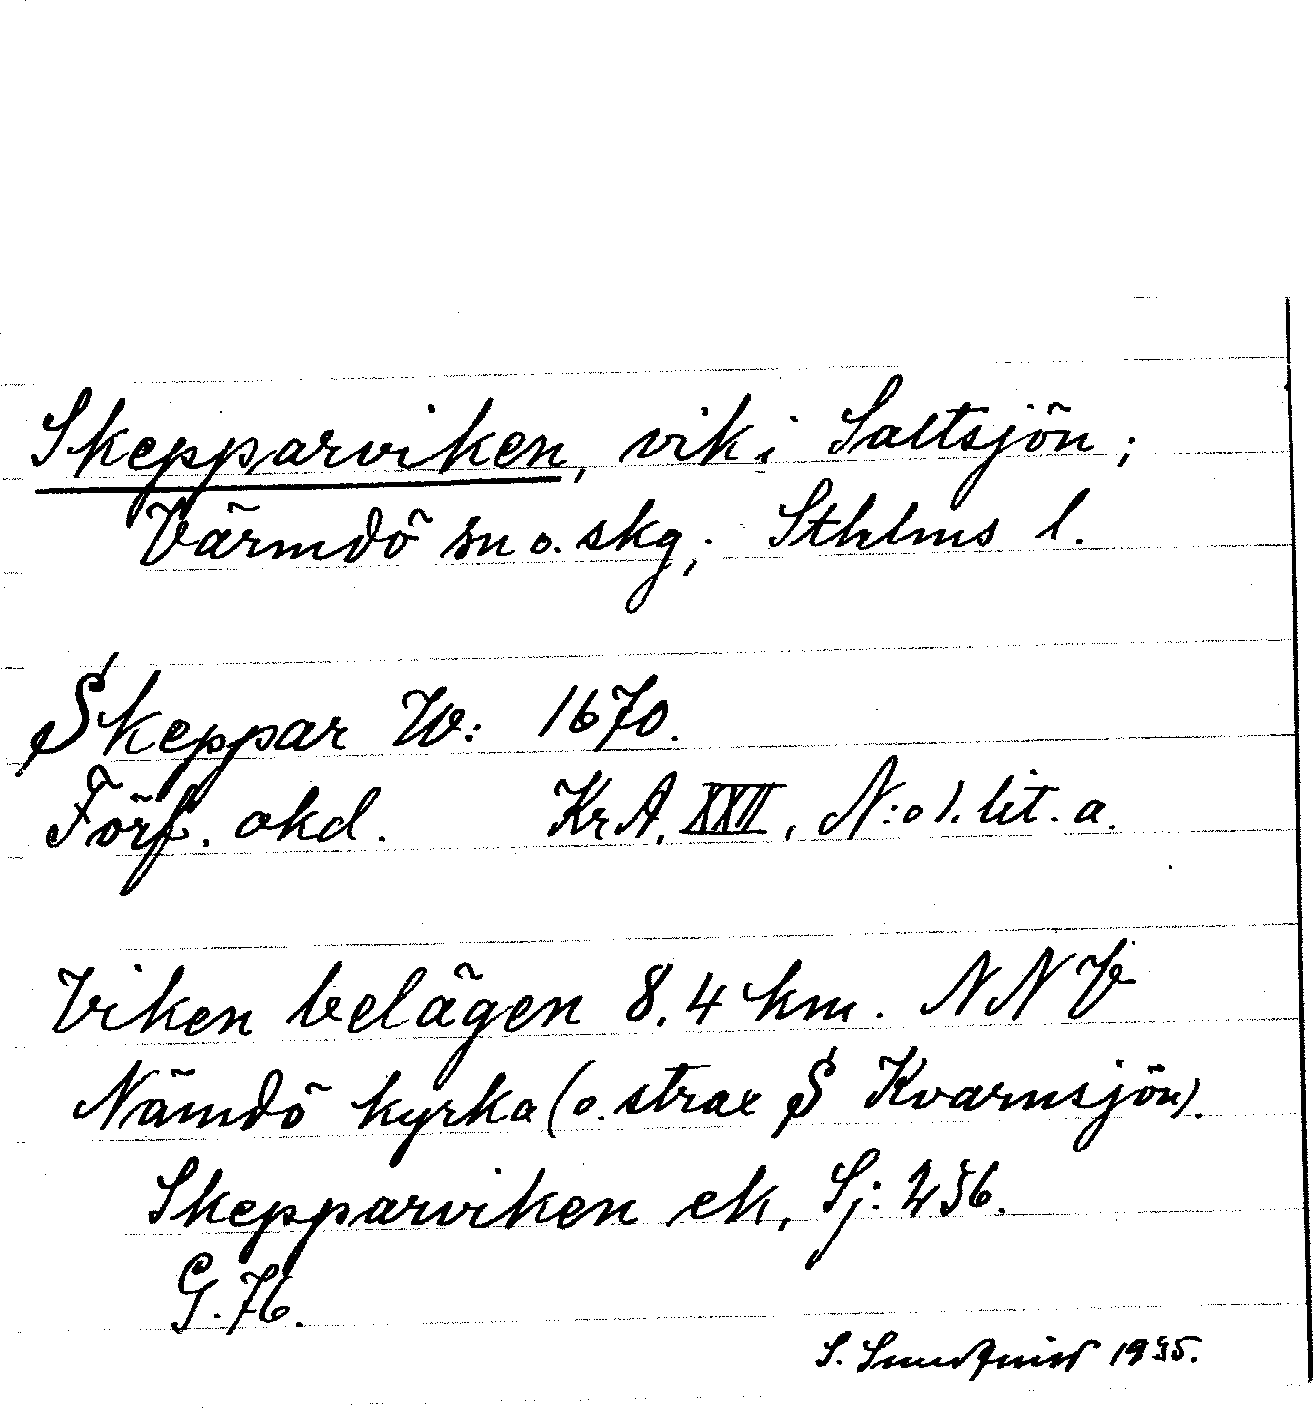 Skepparviken, vik i Saltsjön;
Värmdö sn o. skg; Sthlms l.
Skeppar W: 1670.
Förf. okd. KrA, XXII, N:o 1. lit. a.
Viken belägen 8,4 km. NNV
Nämdö kyrka (o. strax S Kvarnsjön).
Skepparviken ek, Sj: 256.
G. 76.
S. Sundqvist 1935.